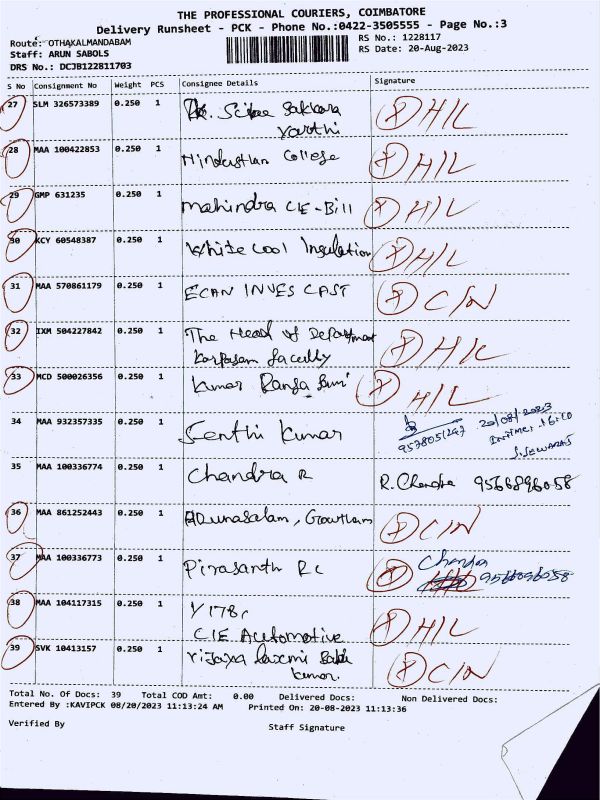 THE PROFESSIONAL COURIERS, COIMBATORE
Delivery Runsheet - PCK - Phone No.:0422-3505555 - Page No.:3
Route: OTHAKALMANDABAM
RS No.: 1228117
Staff: ARUN SABOLS
RS Date: 20-Aug-2023
DRS No.: DCJB122811703
S No Consignment No Weight PCS Consignee Details Signature
27 SLM 326573389 0.250 1 Sakkara H/L
Varthi
28 MAA 100422853 0.250 1 Hindusthan College H/L
29 GMP 631235 0.250 1 mahindra CIE-Bill H/L
30 KCY 60548387 0.250 1 White Cool Insulation H/L
31 MAA 570861179 0.250 1 ECAN INVES CAST C/N
32 IXM 504227842 0.250 1 The Head of Department H/L
Karpagam faculty
33 MCD 500026356 0.250 1 Kumar H/L
34 MAA 932357335 0.250 1 Senthi Kumar 20/08/2023
35 MAA 100336774 0.250 1 Chandra R R. Chandra 9566896058
36 MAA 861252443 0.250 1 Arunasalam, Gowtham C/N
37 MAA 100336773 0.250 1 Pirasanth R c
38 MAA 104117315 0.250 1 Y178, H/L
CIE Automotive
39 SVK 10413157 0.250 1 Vijaya laxmi C/N
kumar.
Total No. Of Docs: 39 Total COD Amt: 0.00 Delivered Docs: Non Delivered Docs:
Entered By :KAVIPCK 08/20/2023 11:13:24 AM Printed On: 20-08-2023 11:13:36
Verified By Staff Signature